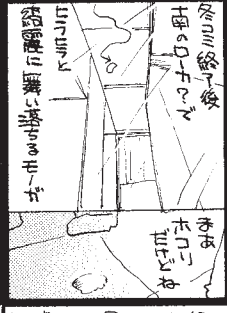 冬コミ終了後
西のローカで
ヒラヒラと
綺麗に舞い落ちるモーが
まあ
ホコリ
だけどね